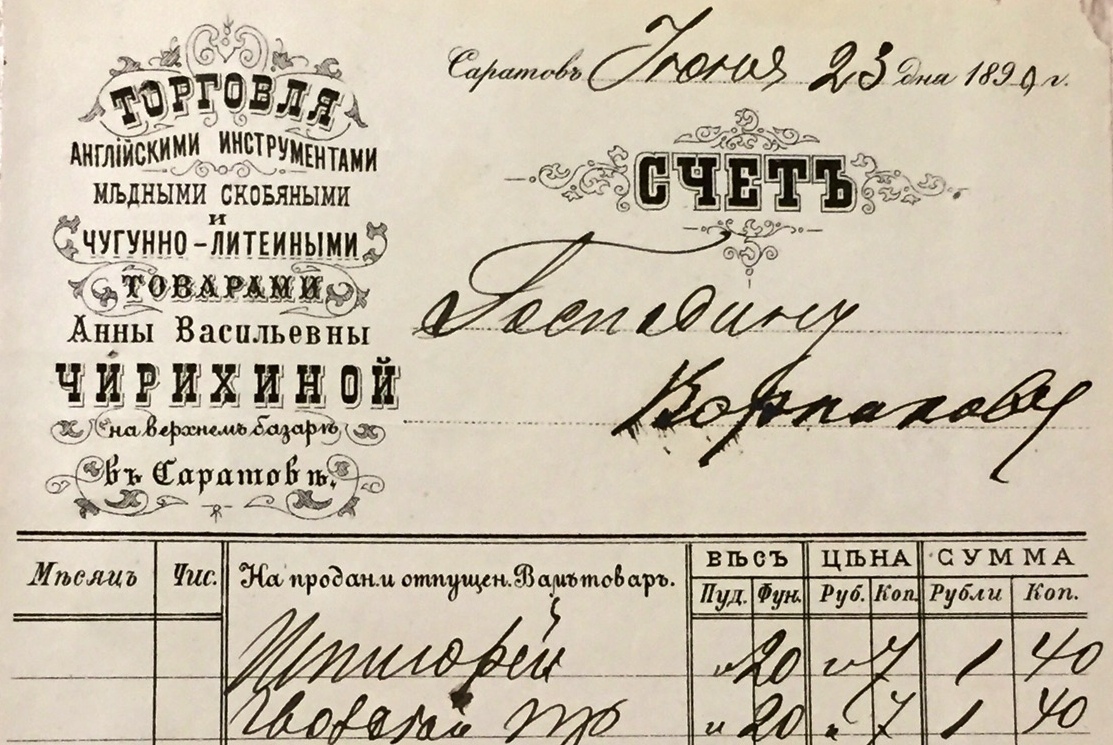 ТОРГОВЛЯ
АНГЛІЙСКИМИ ИНСТРУМЕНТАМИ
МѢДНЫМИ СКОБЯНЫМИ
И
ЧУГУННО-ЛИТЕЙНЫМИ
ТОВАРАМИ
Анны Васильевны
ЧИРИХИНОЙ
на верхнемъ базарѣ
въ Саратовѣ.
Саратовъ Июня 23 дня 1890 г.
СЧЕТЪ
Господину
Мѣсяцъ Чис. На продан. и отпущен. Вамъ товаръ. ВѢСЪ ЦѢНА СУММА
Пуд. Фун. Руб. Коп. Рубли Коп.
" 20 " 7 1 40
" 20 " 7 1 40